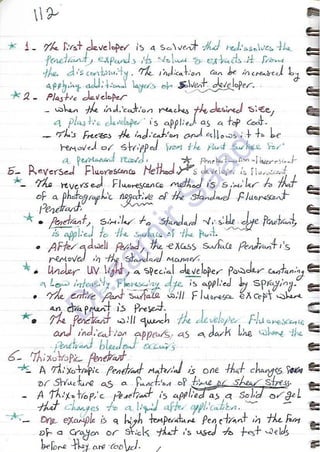 112
* 1- The First developer is a solvent that redissolves the
penetrant, expands its volume & extracts it from
the discontinuity. The indication can be increased by
applying additional layers of solvent developer.
* 2- Plastic developer
- When the indication reaches the desired size,
a plastic developer is applied as a top coat.
- This freezes the indication and allows it to be
removed or stripped from the part surface for
a permanent record.
5- Reversed Fluorescence Method
* - The reversed Fluorescence method is similar to that
of a photographic negative of the standard Fluorescent
Penetrant.
* • Penetrant, similar to standard visible dye Penetrant,
is applied to the surface of the part.
• After a dwell Period, the excess surface Penetrant is
removed in the standard manner.
* • Under UV light, a special developer powder containing
a low intensity Fluorescing dye is applied by spraying.
• The entire part surface will Fluoresce except where
an entrapment is present.
* • The penetrant will quench the developer Fluorescence
and indication appears, as a dark line where the
penetrant bleedout occurs
6- Thixotropic Penetrant
- A Thixotropic Penetrant material is one that changes form
or structure as a function of time or shear stress.
- A Thixotropic penetrant is applied as a solid or gel
that changes to a liquid after application.
* - One example is a high temperature penetrant in the form
of a crayon or stick that is used to test welds
before they are cooled.